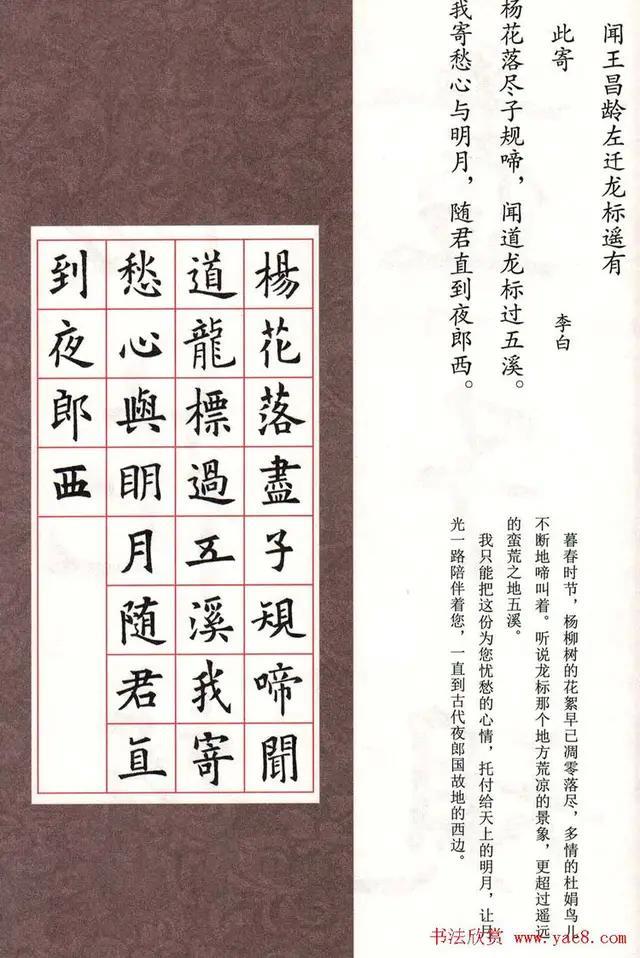 闻王昌龄左迁龙标遥有
此寄
李白
杨花落尽子规啼，闻道龙标过五溪。
我寄愁心与明月，随君直到夜郎西。
暮春时节，杨柳树的花絮早已凋零落尽，多情的杜娟鸟儿
不断地啼叫着。听说龙标那个地方荒凉的景象，更超过遥远
的蛮荒之地五溪。
我只能把这份为您忧愁的心情，托付给天上的明月，让月
光一路陪伴着您，一直到古代夜郎国故地的西边。
楊花落盡子規啼聞
道龍標過五溪我寄
愁心與明月随君直
到夜郎西
书法欣赏 www.yac8.com